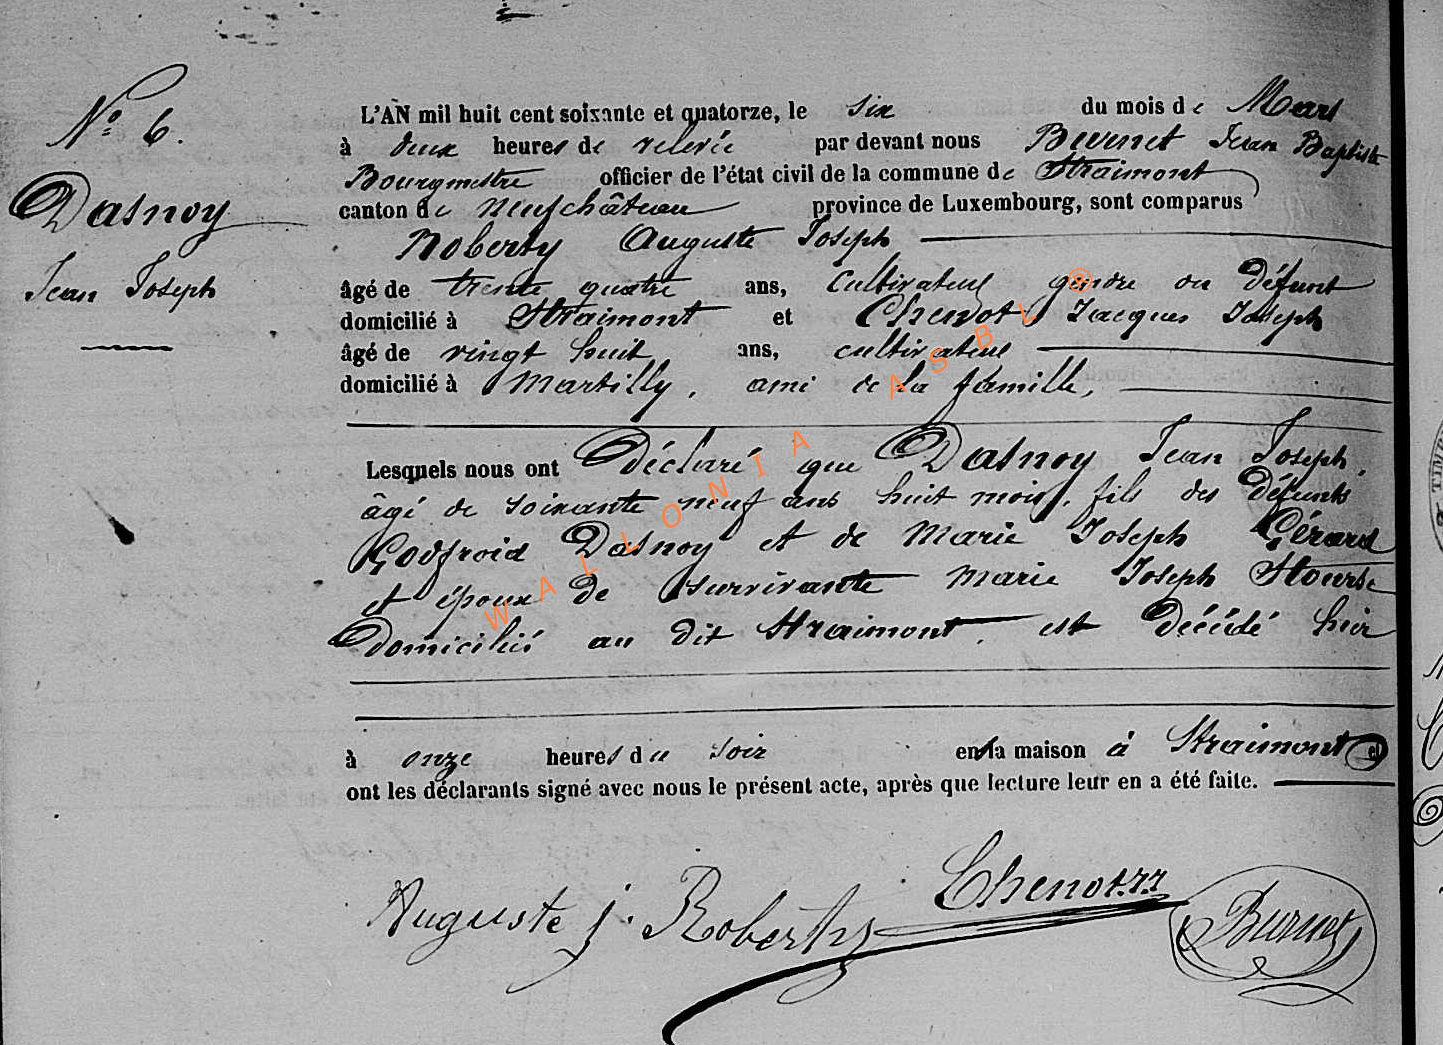 N° 6.
Dasnoy
Jean Joseph
L'AN mil huit cent soixante et quatorze, le six du mois de Mars
à deux heures de relevée par devant nous Burnet Jean Baptiste
Bourgmestre officier de l'état civil de la commune de Straimont
canton de Neufchâteau province de Luxembourg, sont comparus
Roberty Auguste Joseph
âgé de trente quatre ans, cultivateur gendre du défunt
domicilié à Straimont et Chenot Jacques Joseph
âgé de vingt huit ans, cultivateur
domicilié à Martilly, ami de la famille,
Lesquels nous ont Déclaré que Dasnoy Jean Joseph,
âgé de soixante neuf ans huit mois, fils des défunts
Godfroid Dasnoy et de Marie Joseph Gérard
et époux de survivante Marie Joseph
Domiciliés au dit Straimont, est décédé hier
à onze heures du soir en sa maison à Straimont et
ont les déclarants signé avec nous le présent acte, après que lecture leur en a été faite.
Chenot JJ
Auguste j. Roberty
Burnet
WALLONIA ASBL ®